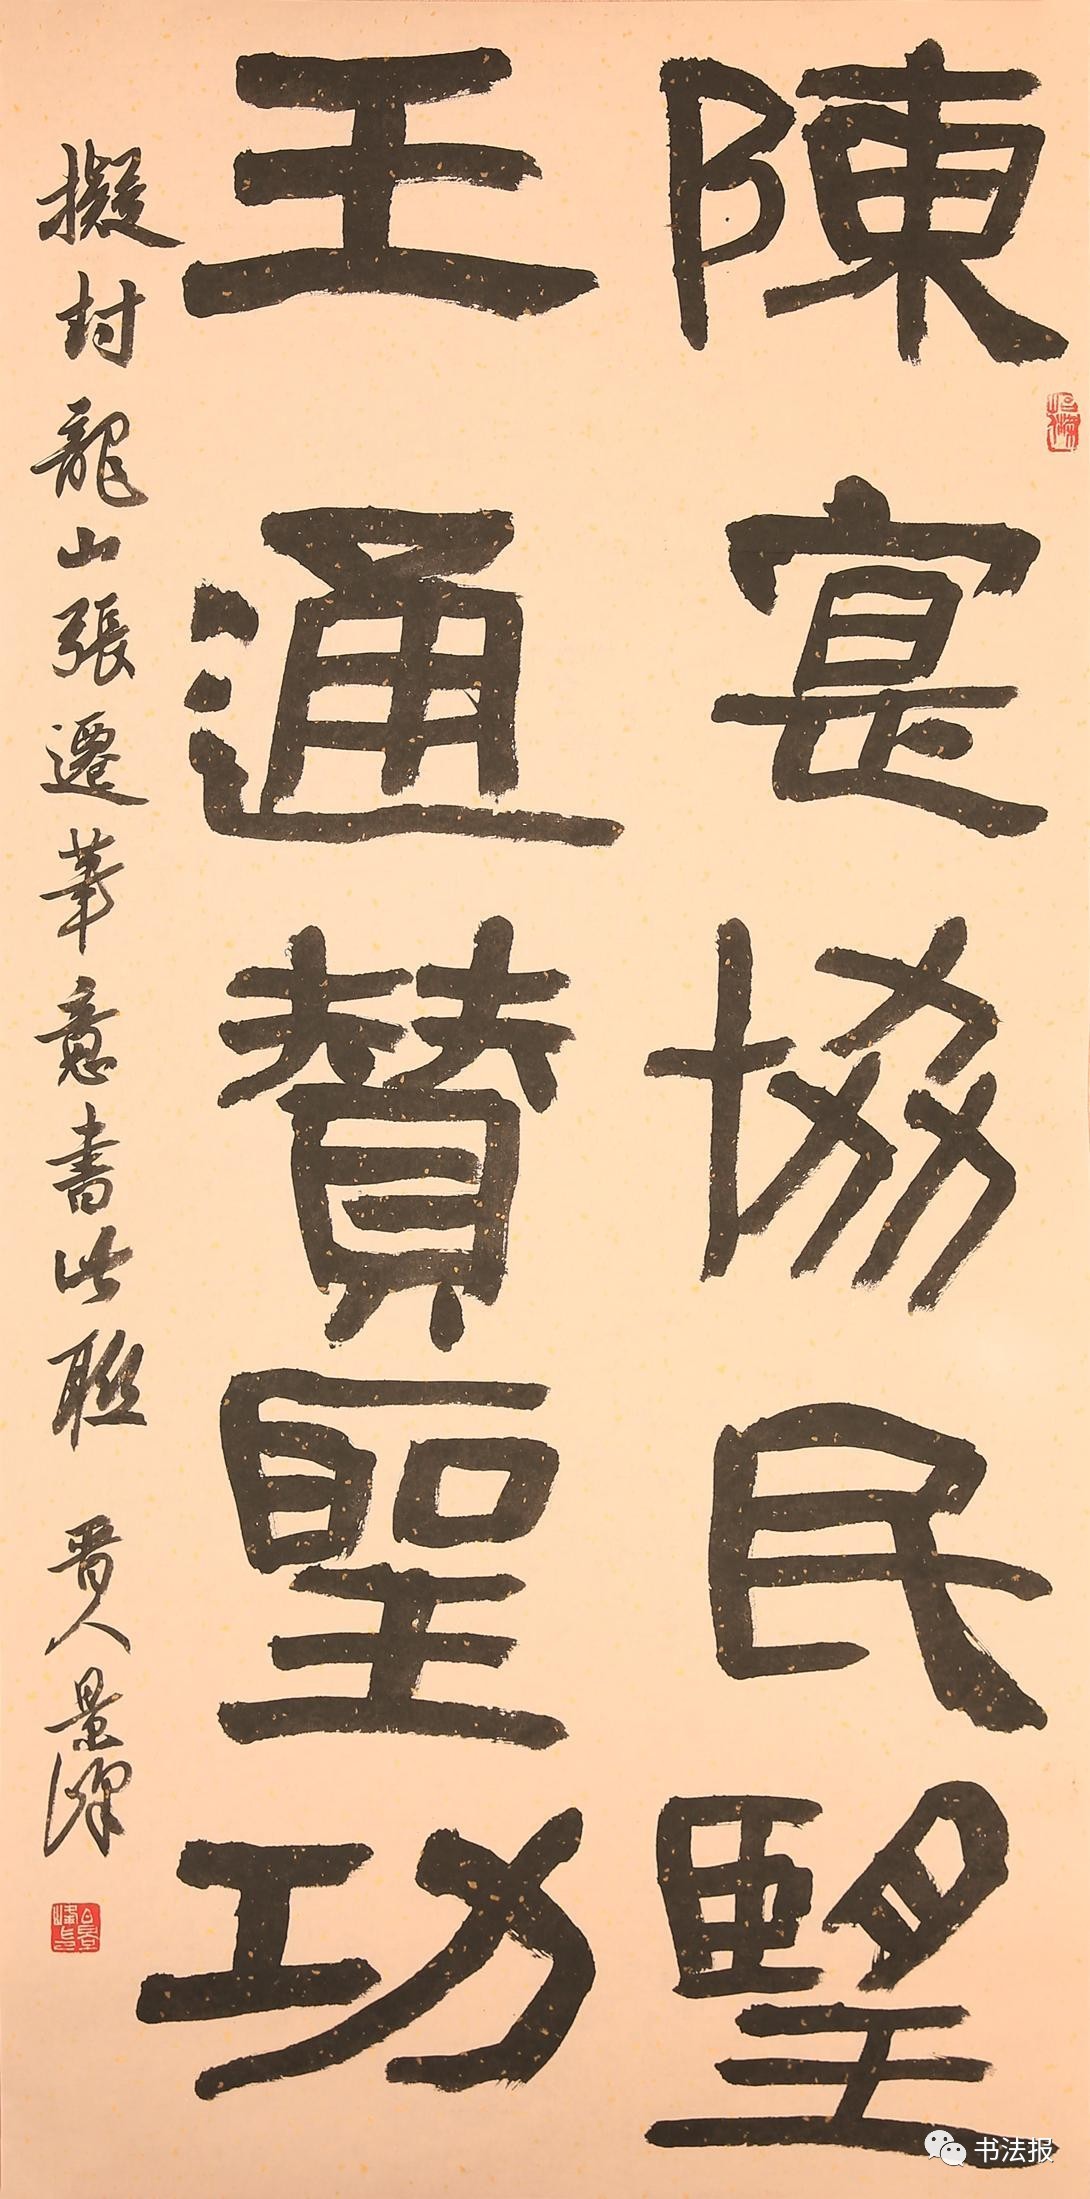 陳寔協民望
王通贊聖功
擬封龍山張遷筆意書此聯 晋人景峰
书法报